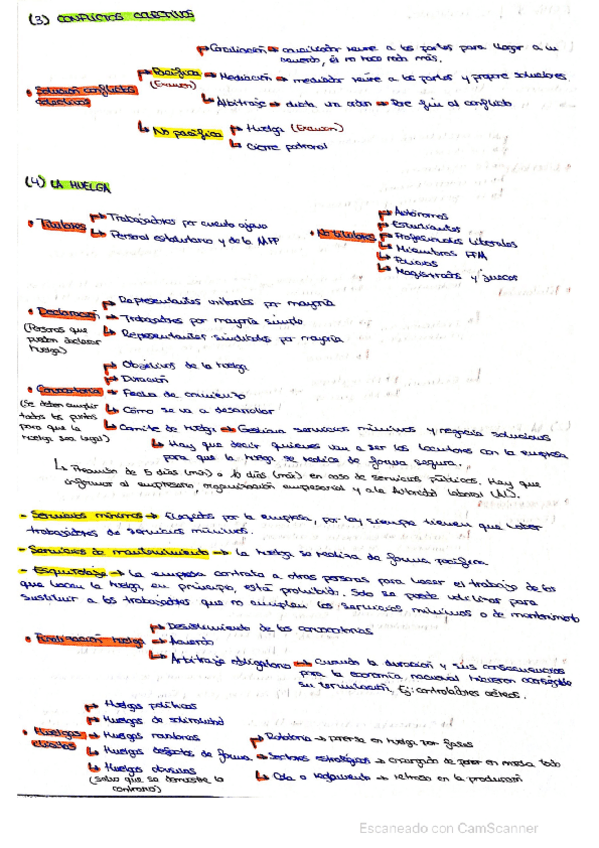 (3) CONFLICTOS COLECTIVOS
Conciliación → conciliador reune a las partes para llegar a un
acuerdo, él no hace nada más.
• Solución conflictos
colectivos
Pacífica
(Examen)
Mediación → mediador reune a las partes y propone soluciones.
Arbitraje → dicta un → Pone fin al conflicto
No pacífica
Huelga (Examen)
Cierre patronal
(4) LA HUELGA
• Titulares
Trabajadores por cuenta ajena
Personal estatutario y de la APP
• No titulares
Autónomos
Estudiantes
Profesionales liberales
Miembros FFAA
Policías
Magistrados y jueces
• Declaración
(Personas que
pueden declarar
huelga)
Representantes unitarios por mayoría
Trabajadores por mayoría simple
Representantes sindicales por mayoría
• Convocatoria
(Se deben cumplir
todos los puntos
para que la
huelga sea legal)
Objetivos de la huelga
Duración
Fecha de comienzo
Cómo se va a desarrollar
Comite de huelga → Gestiona servicios mínimos y negocia soluciones
Hay que decir quienes van a ser los locutores con la empresa
para que la huelga se realice de forma segura.
Preaviso de 5 días (min) o 10 días (min) en caso de servicios públicos. Hay que
informar al empresario, organización empresarial y a la Autoridad laboral (AL).
- Servicios mínimos → Elegidos por la empresa, por ley siempre tienen que haber
trabajadores de servicios mínimos.
- Servicios de mantenimiento → la huelga se realiza de forma pacífica.
- Esquirolaje → La empresa contrata a otras personas para hacer el trabajo de los
que hacen la huelga, en principio, está prohibido. Solo se puede utilizar para
sustituir a los trabajadores que no cumplen los servicios mínimos o de mantenimiento
• Finalización huelga
Desistimiento de los convocatorias
Acuerdo
Arbitraje obligatorio → Cuando la duración y sus consecuencias
para la economía nacional hicieron aconsejable
su terminación. Ej: controladores aéreos.
• Huelgas
ilícitas
Huelgas políticas
Huelgas de solidaridad
Huelgas novatorias
Huelgas defectos de forma
Huelgas abusivas
(salvo que se demuestre lo
contrario)
Rotatoria → ponerse en huelga por fases
Sectores estratégicos → encargado de poner en marcha todo
Celo o reglamento → retraso en la producción
Escaneado con CamScanner